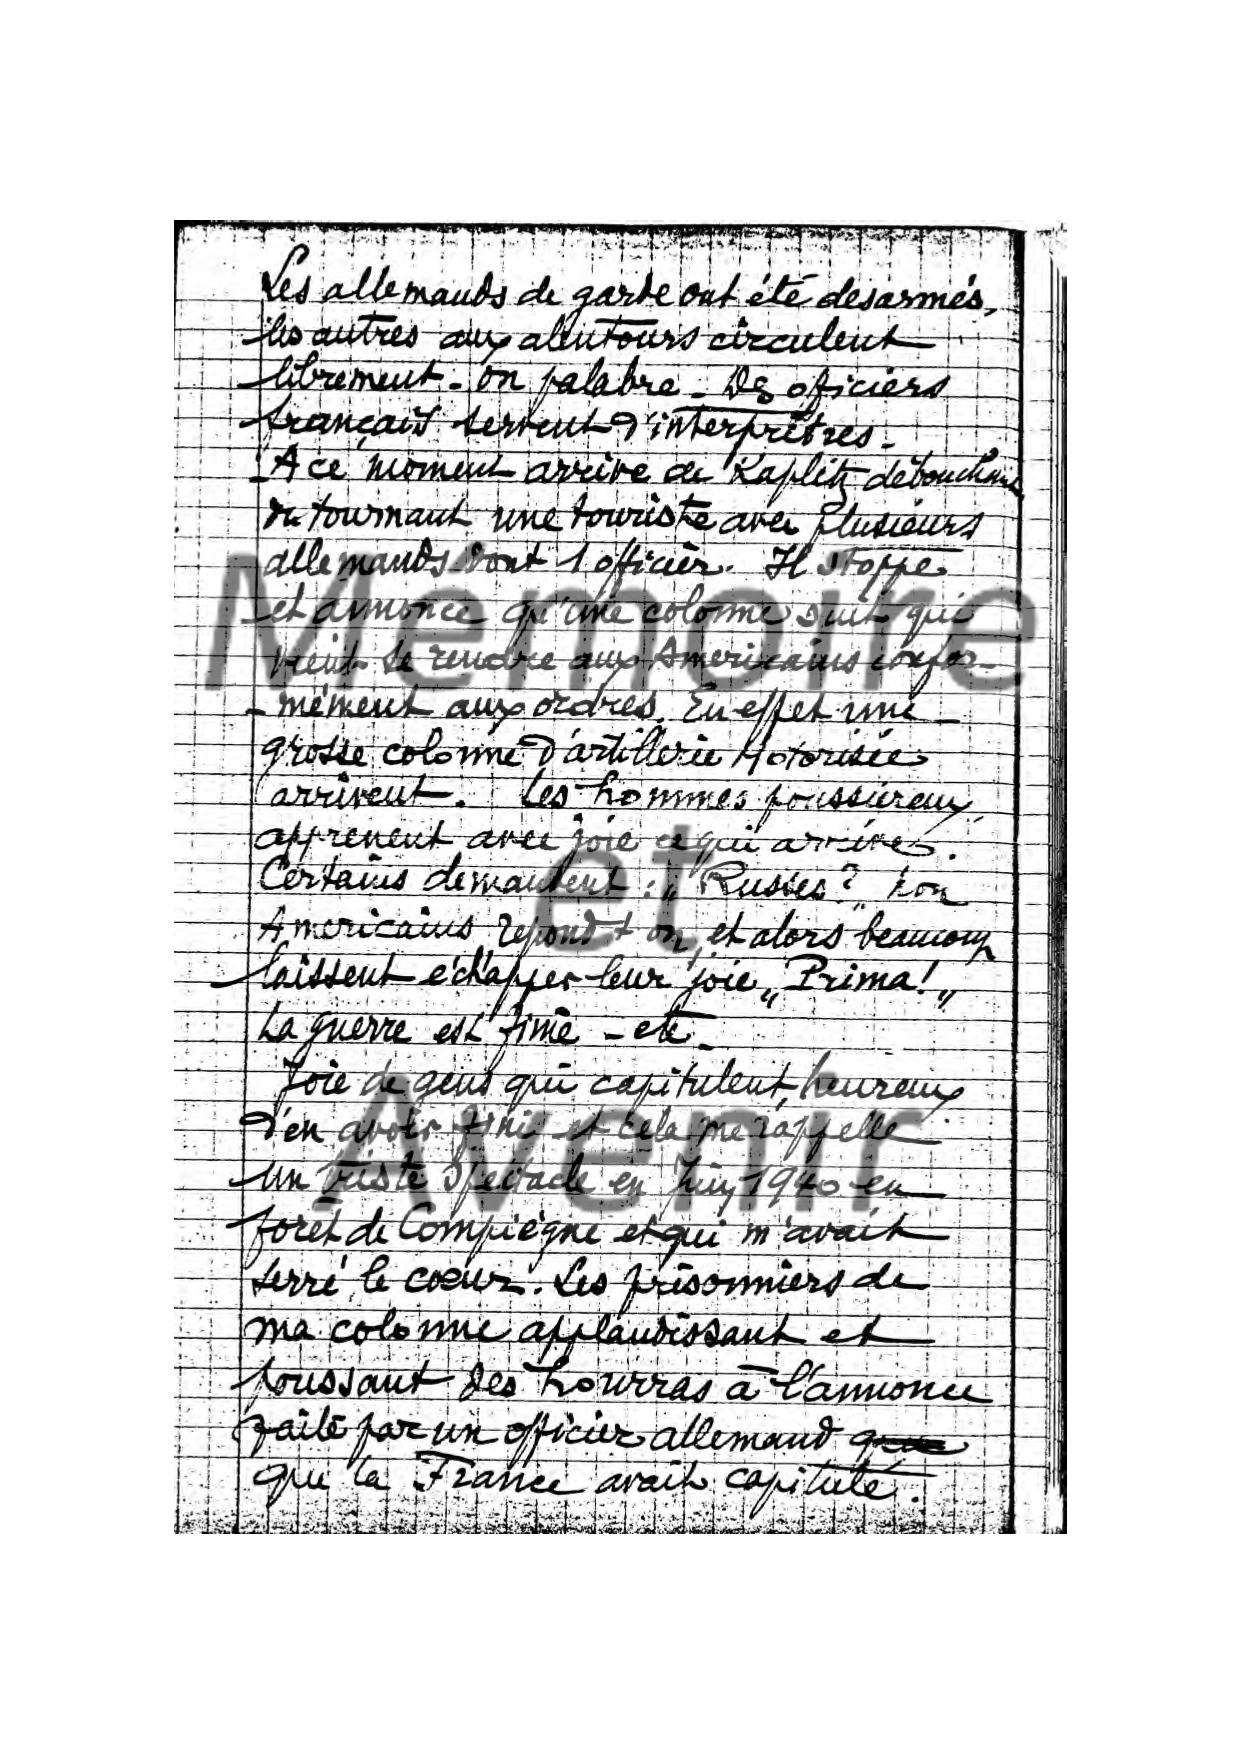 Les allemands de garde ont été desarmés,
les autres aux alentours circulent
librement - on palabre - Des officiers
français servent d'interprètres -
A ce moment arrive de Kaplitz débouchant
du tournant une touriste avec plusieurs
allemands dont 1 officier. Il stoppe
et annonce qu'une colonne suit qui
vient se rendre aux Americains confor-
-mément aux ordres. En effet une
grosse colonne d'artillerie Motorisée
arrivent. Les hommes poussiereux
apprenent avec joie ce qui arrive.
Certains demandent : "Russes?" non
Americains repond t on, et alors beaucoup
laissent échapper leur joie "Prima!"
La guerre est finie - etc -
Joie de gens qui capitulent, heureux
d'en avoir fini et cela me rappelle
un triste spectacle en Juin 1940 en
foret de Compiègne et qui m'avait
serré le cœur. Les prisonniers de
ma colonne applaudissant et
poussant des hourras à l'annonce
faite par un officier allemand que
que la France avait capitulé.
Mémoire
et
Avenir